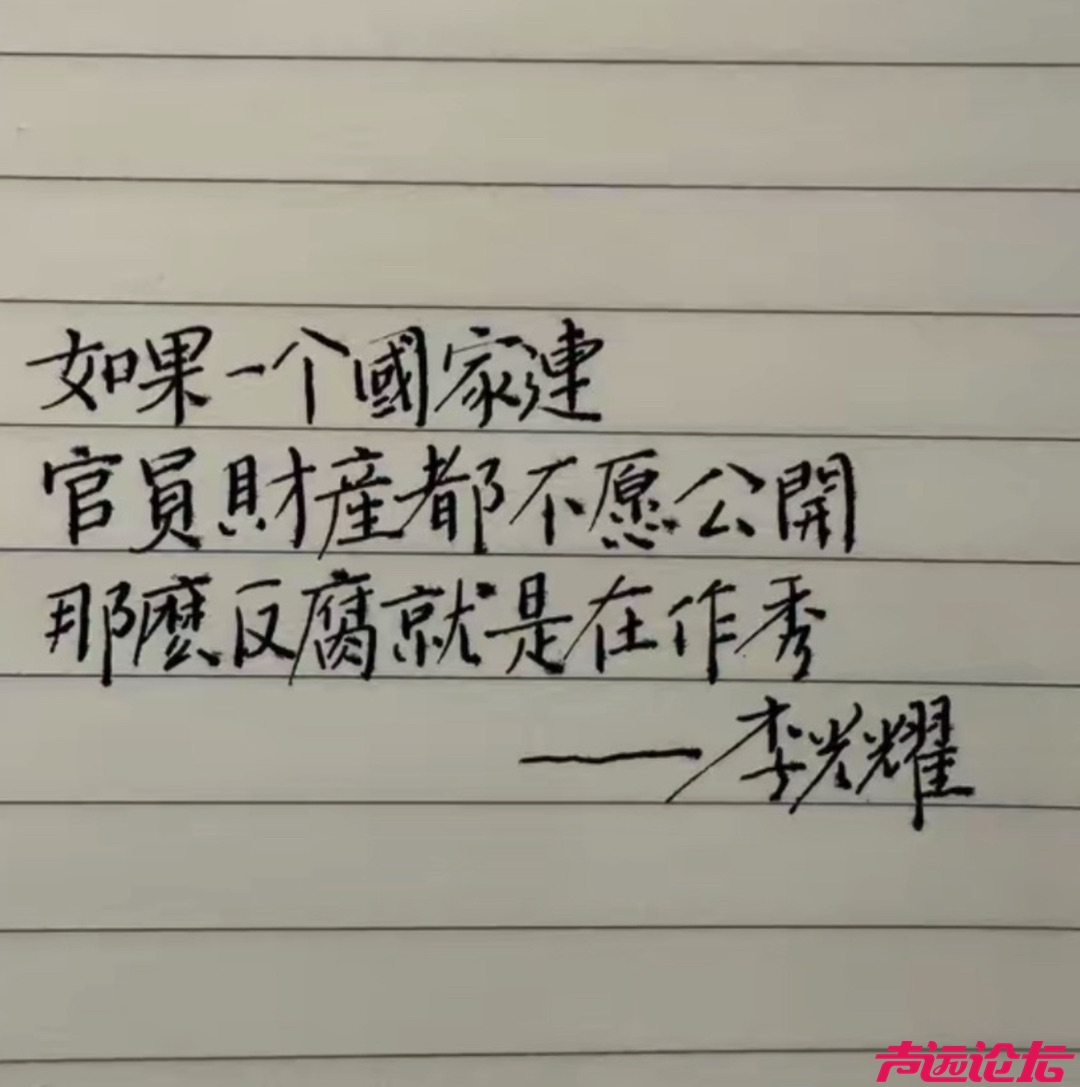 如果一个國家連
官員財産都不愿公開
那麽反腐就是在作秀
——李光耀
声远论坛